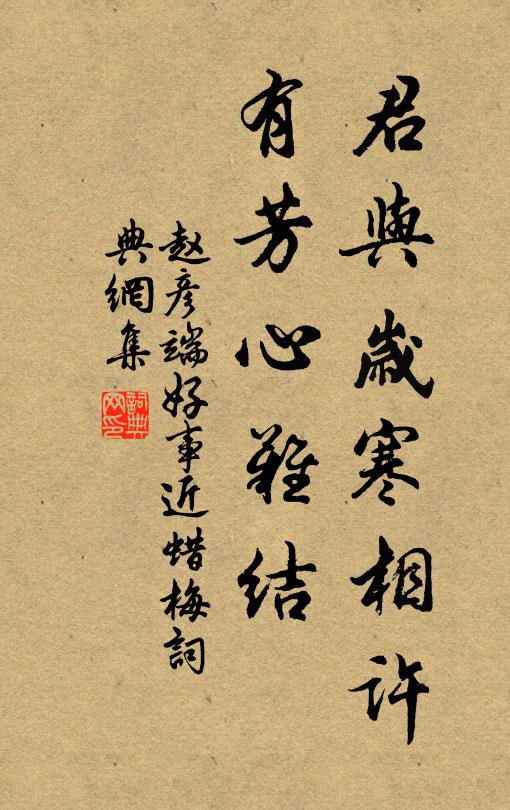 君與歲寒相許
有芳心難結
赵彦端好事近蜡梅詞
典網集
詞典
网印